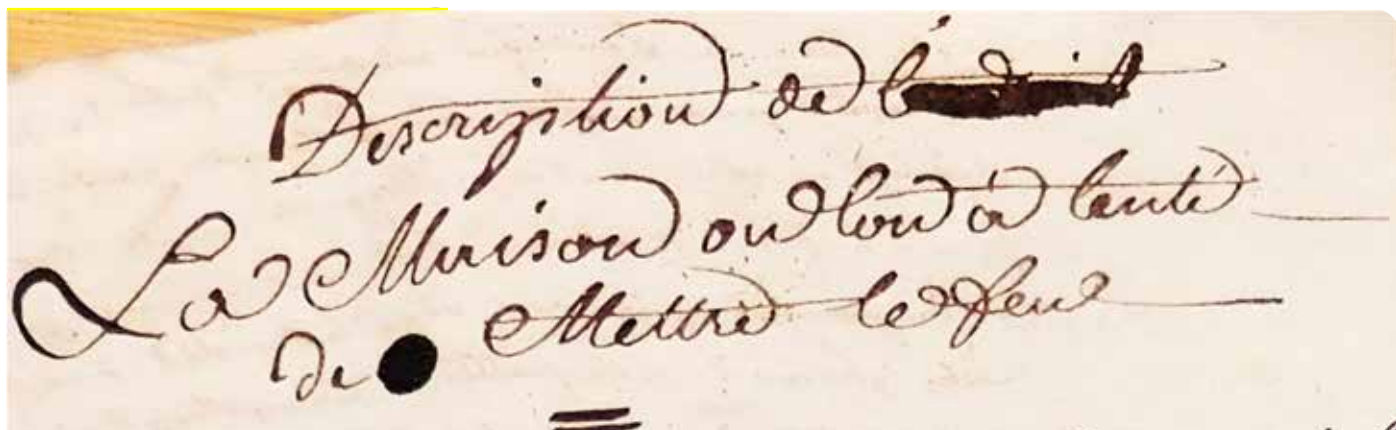 Description de
La Maison ou lon à tenté
de Mettre le feu